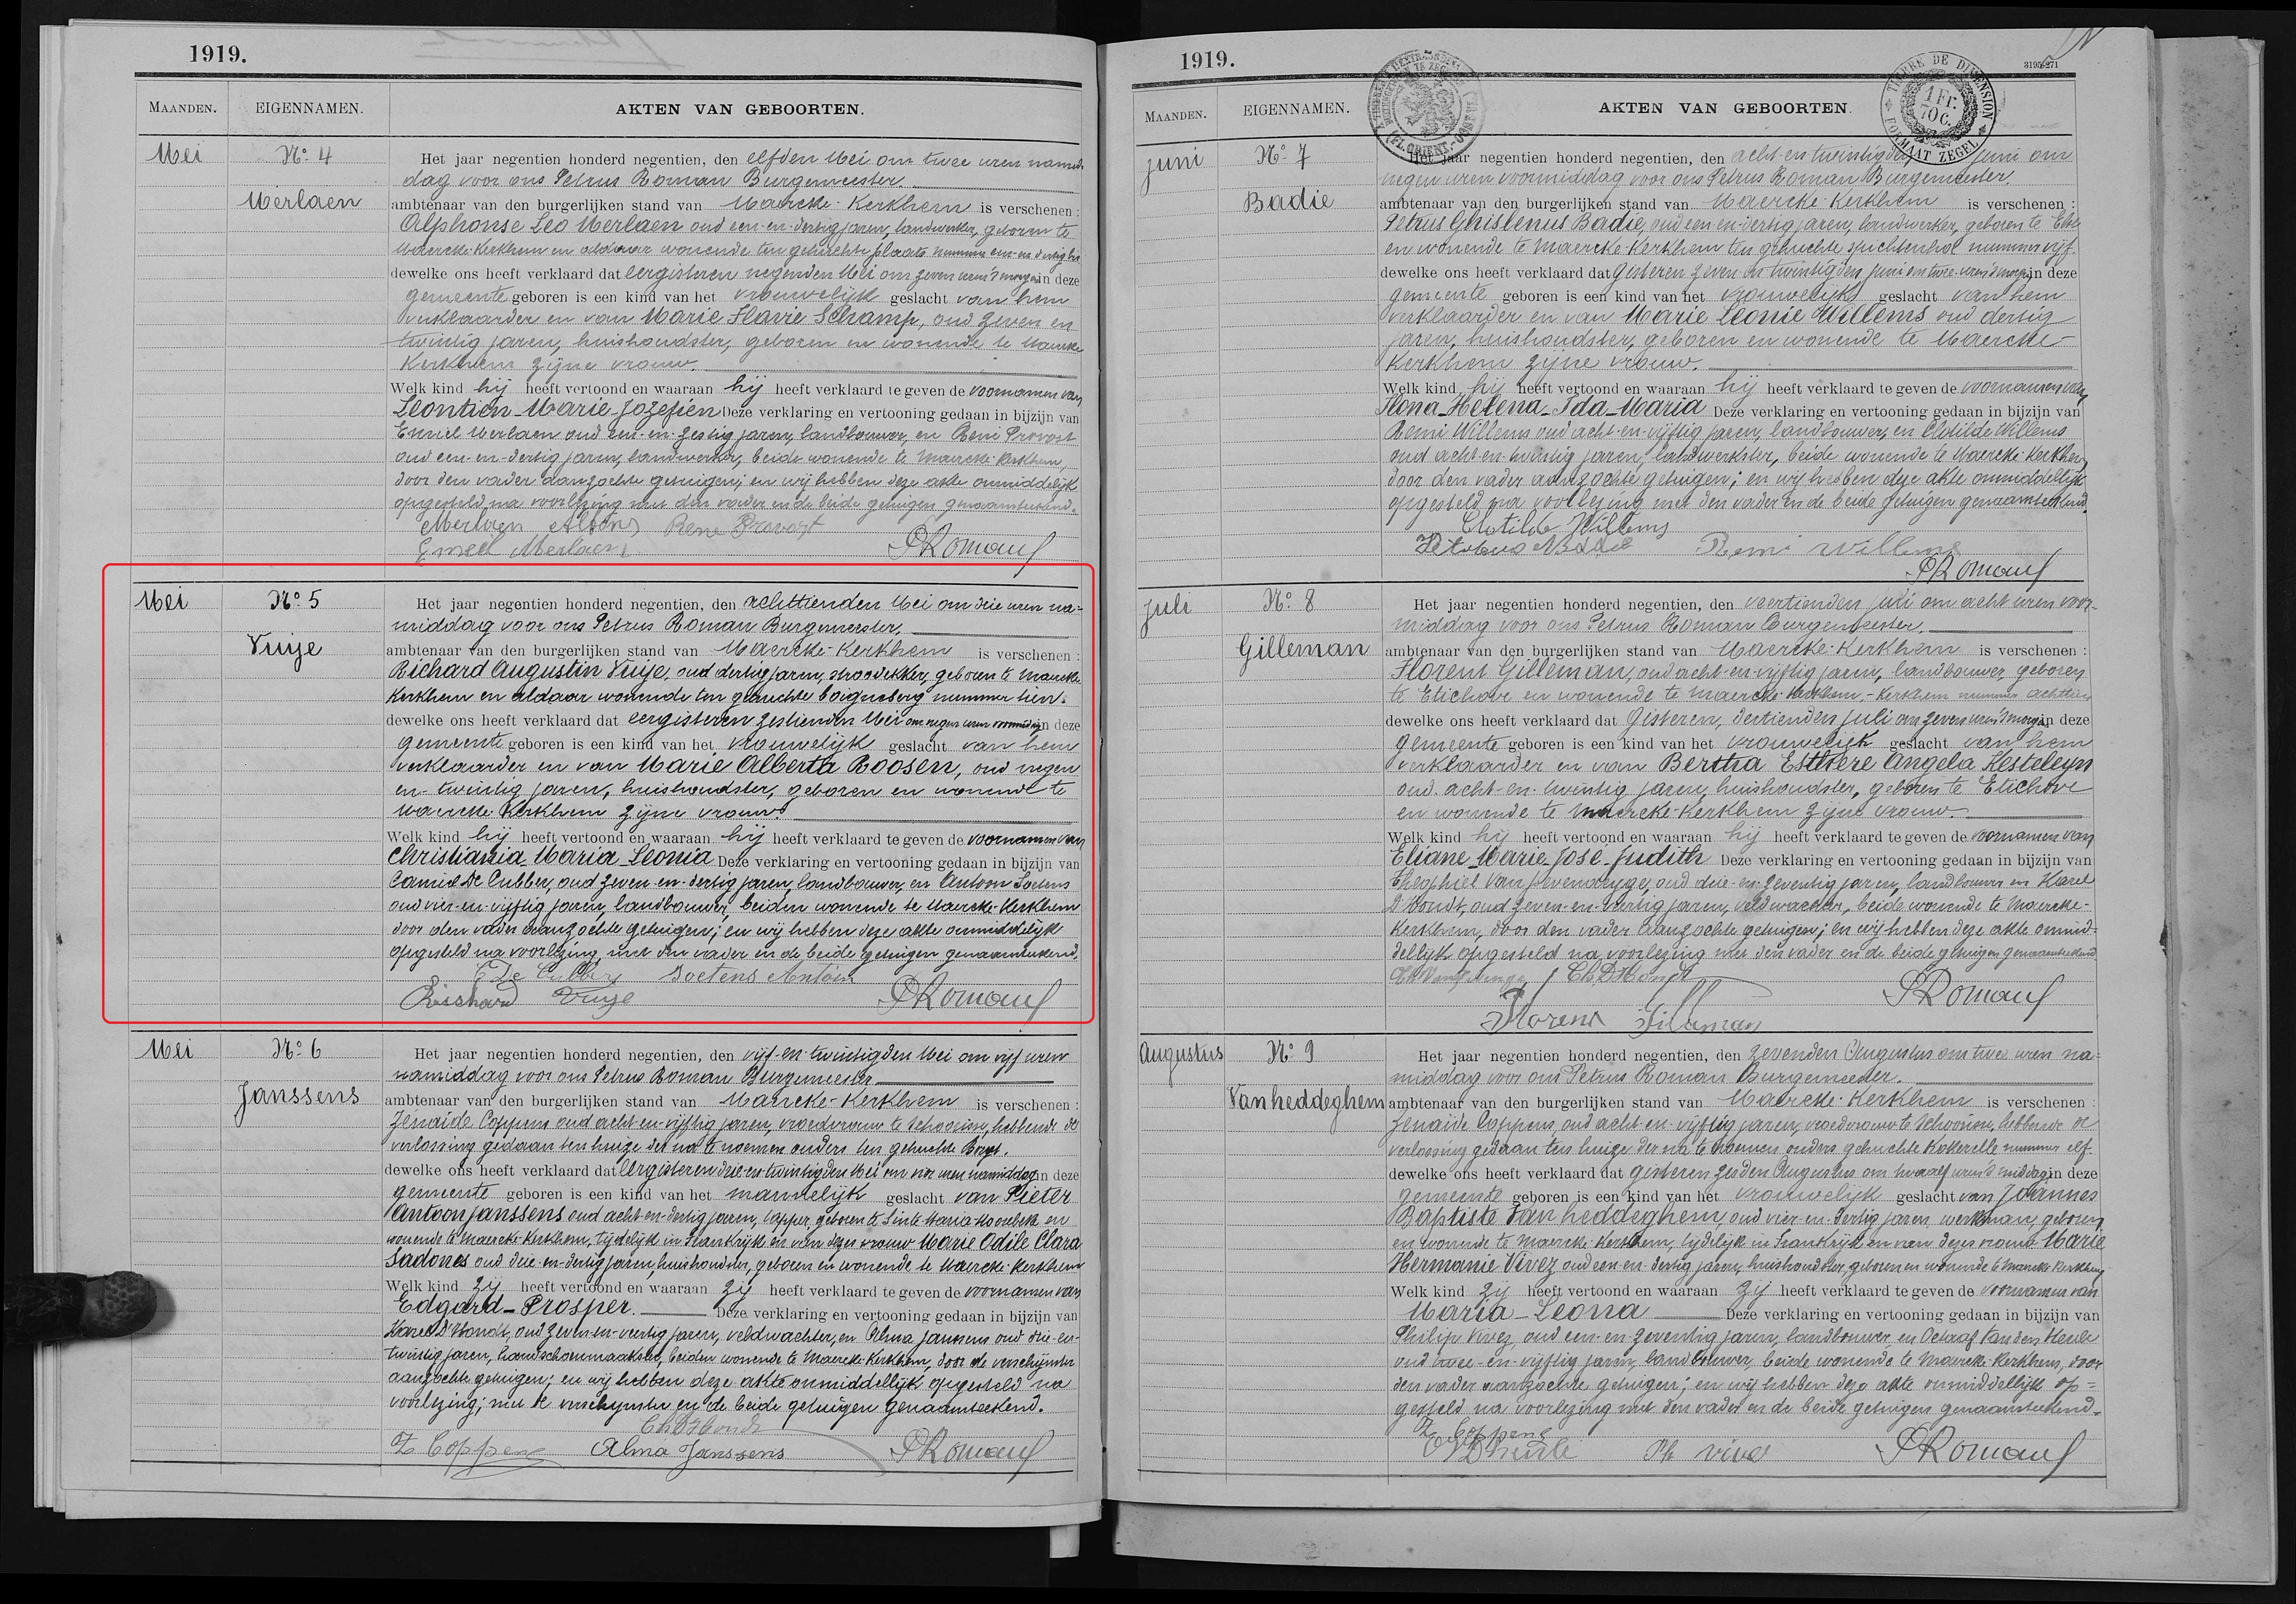 1919.
MAANDEN. EIGENNAMEN. AKTEN VAN GEBOORTEN.
Mei No 4
Merlaen
Het jaar negentien honderd negentien, den elfden Mei om twee uren namid-
dag voor ons Petrus Roman Burgemeester.
ambtenaar van den burgerlijken stand van Maercke-Kerkhem is verschenen :
Alphonse Leo Merlaen oud een-en-dertig jaren, landwerker, geboren te
Maercke-Kerkhem en aldaar wonende ten gehuchte plaats nummer een-en-dertig
dewelke ons heeft verklaard dat eergisteren negenden Mei om zeven uren 's morgens in deze
gemeente geboren is een kind van het vrouwelijk geslacht van hem
verklaarder en van Marie Flavie Schamp, oud zeven en
twintig jaren, huishoudster, geboren en wonende te Maercke
Kerkhem zijne vrouw.
Welk kind hij heeft vertoond en waaraan hij heeft verklaard te geven de voornamen van
Leontien-Marie-Jozefien Deze verklaring en vertooning gedaan in bijzijn van
Emiel Merlaen oud een-en-zestig jaren, landbouwer, en René Provost
oud een-en-dertig jaren, landwerker, beide wonende te Maercke-Kerkhem,
door den vader aanzochte getuigen; en wij hebben deze akte onmiddelijk
opgesteld na voorlezing met den vader en de beide getuigen genaamteekend.
Merlaen Alfons René Provost
Emiel Merlaen PRoman
Mei No 5
Vuije
Het jaar negentien honderd negentien, den achttienden Mei om drie uren na-
middag voor ons Petrus Roman Burgemeester.
ambtenaar van den burgerlijken stand van Maercke-Kerkhem is verschenen :
Richard Augustin Vuije, oud dertig jaren, stroodekker, geboren te Maercke
Kerkhem en aldaar wonende ten gehuchte boigneberg nummer tien.
dewelke ons heeft verklaard dat eergisteren zestienden Mei om negen uren voormiddag in deze
gemeente geboren is een kind van het vrouwelijk geslacht van hem
verklaarder en van Marie Alberta Roosen, oud negen
en-twintig jaren, huishoudster, geboren en wonende te
Maercke Kerkhem zijne vrouw.
Welk kind hij heeft vertoond en waaraan hij heeft verklaard te geven de voornamen van
Christiania-Maria-Leonia Deze verklaring en vertooning gedaan in bijzijn van
Camiel De Cubber, oud zeven-en-dertig jaren, landbouwer, en Antoon Soetens
oud vier-en-vijftig jaren, landbouwer, beiden wonende te Maercke-Kerkhem
door den vader aanzochte getuigen; en wij hebben deze akte onmiddelijk
opgesteld na voorlezing, met den vader en de beide getuigen genaamteekend.
C De Cubber Soetens Antoin
Risschard Vuije PRoman
Mei No 6
Janssens
Het jaar negentien honderd negentien, den vijf-en-twintigden Mei om vijf uren
namiddag voor ons Petrus Roman Burgemeester
ambtenaar van den burgerlijken stand van Maercke-Kerkhem is verschenen :
Zénaïde Coppens oud acht-en-vijftig jaren, vroedvrouw te Schoorisse, hebbende de
verlossing gedaan ten huize der na te noemen ouders ten gehuchte
dewelke ons heeft verklaard dat eergisteren drie-en-twintigden Mei om uren namiddag in deze
gemeente geboren is een kind van het mannelijk geslacht van Pieter
Antoon Janssens oud acht-en-dertig jaren, geboren te Sinte Maria-Hoorebeke en
wonende te Maercke-Kerkhem, tijdelijk in Frankrijk en van dezes vrouw Marie Odile Clara
Sadones oud drie-en-dertig jaren, huishoudster, geboren en wonende te Maercke-Kerkhem
Welk kind zij heeft vertoond en waaraan zij heeft verklaard te geven de voornamen van
Edgard-Prosper. Deze verklaring en vertooning gedaan in bijzijn van
Karel D'Hondt, oud zeven-en-veertig jaren, veldwachter, en Alma Janssens oud drie-en-
twintig jaren, handschoenmaakster, beiden wonende te Maercke-Kerkhem, door de verschijnster
aanzochte getuigen; en wij hebben deze akte onmiddellijk opgesteld na
voorlezing; met de verschijnster en de beide getuigen genaamteekend.
Ch D'Hondt
Z Coppens Alma Janssens PRoman
1919.
3195 271
TIMBRE DE DIMENSION
1 Fr.
70 C.
FORMAAT ZEGEL
MAANDEN. EIGENNAMEN. AKTEN VAN GEBOORTEN.
Juni No 7
Badie
Het jaar negentien honderd negentien, den acht-en-twintigden Juni om
negen uren voormiddag voor ons Petrus Roman Burgemeester.
ambtenaar van den burgerlijken stand van Maercke-Kerkhem is verschenen :
Petrus Ghislenus Badie, oud een-en-dertig jaren, landwerker, geboren te
en wonende te Maercke-Kerkhem ten gehuchte spichtenhol nummer vijf.
dewelke ons heeft verklaard dat gisteren zeven-en-twintigden Juni om twee uren 's morgens in deze
gemeente geboren is een kind van het vrouwelijk geslacht van hem
verklaarder en van Marie Leonie Willems oud dertig
jaren, huishoudster, geboren en wonende te Maercke-
Kerkhem zijne vrouw.
Welk kind hij heeft vertoond en waaraan hij heeft verklaard te geven de voornamen van
Ilona-Helena-Ida-Maria Deze verklaring en vertooning gedaan in bijzijn van
Remi Willems oud acht-en-vijftig jaren, landbouwer, en Clotilde Willems
oud acht-en-twintig jaren, landwerkster, beide wonende te Maercke-Kerkhem
door den vader aanzochte getuigen; en wij hebben deze akte onmiddellijk
opgesteld na voorlezing met den vader en de beide getuigen genaamteekend.
Clotilde Willems
Badie Remi Willems
PRoman
Juli No 8
Gilleman
Het jaar negentien honderd negentien, den veertienden Juli om acht uren voor-
middag voor ons Petrus Roman Burgemeester.
ambtenaar van den burgerlijken stand van Maercke-Kerkhem is verschenen :
Florent Gilleman, oud acht-en-vijftig jaren, landbouwer, geboren
te Etichove en wonende te Maercke-Kerkhem,-Kerkhem nummer achttien
dewelke ons heeft verklaard dat gisteren, dertienden Juli om zeven uren 's morgens in deze
gemeente geboren is een kind van het vrouwelijk geslacht van hem
verklaarder en van Bertha Esthere Angela Kesteleyn
oud acht-en-twintig jaren, huishoudster, geboren te Etichove
en wonende te Maercke-Kerkhem zijne vrouw.
Welk kind hij heeft vertoond en waaraan hij heeft verklaard te geven de voornamen van
Eliane-Marie-José-Judith Deze verklaring en vertooning gedaan in bijzijn van
Theophiel oud drie-en-zeventig jaren, landbouwer en Karel
D'Hondt, oud zeven-en-veertig jaren, veldwachter, beide wonende te Maercke-
Kerkhem, door den vader aanzochte getuigen; en wij hebben deze akte onmid-
dellijk opgesteld na voorlezing met den vader en de beide getuigen genaamteekend
Ch D'Hondt PRoman
Florent Gilleman
Augustus No 9
Vanheddeghem
Het jaar negentien honderd negentien, den zevenden Augustus om twee uren na-
middag voor ons Petrus Roman Burgemeester.
ambtenaar van den burgerlijken stand van Maercke-Kerkhem is verschenen :
Zenaïde Coppens, oud acht-en-vijftig jaren, vroedvrouw te Schoorisse, hebbende de
verlossing gedaan ten huize der na te noemen ouders gehuchte Kokerelle nummer elf.
dewelke ons heeft verklaard dat gisteren zesden Augustus om twaalf uren 's middags in deze
gemeente geboren is een kind van het vrouwelijk geslacht van Joannes
Baptiste Vanheddeghem, oud vier-en-dertig jaren, werkman, geboren
en wonende te Maercke-Kerkhem, tijdelijk in Frankrijk en van dezes vrouw Marie
Hermanie Vivez oud een-en-dertig jaren, huishoudster, geboren en wonende te Maercke Kerkhem
Welk kind zij heeft vertoond en waaraan zij heeft verklaard te geven de voornamen van
Maria-Leona Deze verklaring en vertooning gedaan in bijzijn van
Philip Vivez, oud een-en-zeventig jaren, landbouwer, en Octaaf Vanden Heule
oud twee-en-vijftig jaren, landbouwer, beide wonende te Maercke-Kerkhem, door
den vader aanzochte getuigen; en wij hebben deze akte onmiddellijk op-
gesteld na voorlezing met den vader en de beide getuigen genaamteekend.
Z Coppens
Ph Vivez PRoman